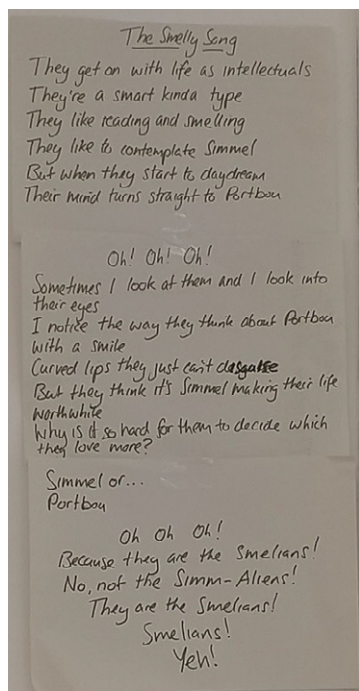 The Smelly Song
They get on with life as intellectuals
They're a smart kinda type
They like reading and smelling
They like to contemplate Simmel
But when they start to daydream
Their mind turns straight to Portbou
Oh! Oh! Oh!
Sometimes I look at them and I look into
their eyes
I notice the way they think about Portbou
with a smile
Curved lips they just can't
But they think it's Simmel making their life
worthwhile
Why is it so hard for them to decide which
they love more?
Simmel or...
Portbou
Oh Oh Oh!
Because they are the Smelians!
No, not the Simm-Aliens!
They are the Smelians!
Smelians!
Yeh!